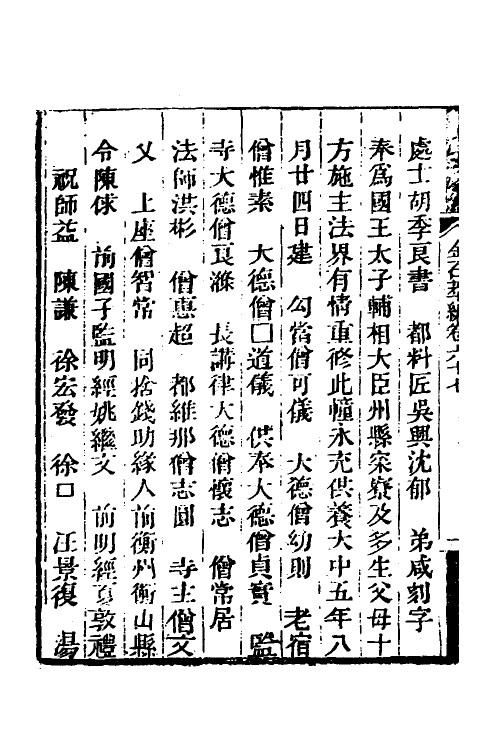 金石萃編卷六十七
處士胡季良書　都料匠吳興沈郁　弟咸刻字
奉爲國王太子輔相大臣州縣寀寮及多生父母十
方施主法界有情重修此幢永充供養大中五年八
月廿四日建　勾當僧可儀　大德僧幼則　老宿
僧惟素　大德僧囗道儀　供奉大德僧貞實　監
寺大德僧良滌　長講律大德僧懷志　僧常居
法師洪彬　僧惠超　都維那僧志圓　寺主僧文
义　上座僧智常　同捨錢助緣人前衡州衡山縣
令陳俅　前國子監明經姚繼文　前明經夏敦禮
祝師益　陳謙　徐宏發　徐囗　汪景復　湯